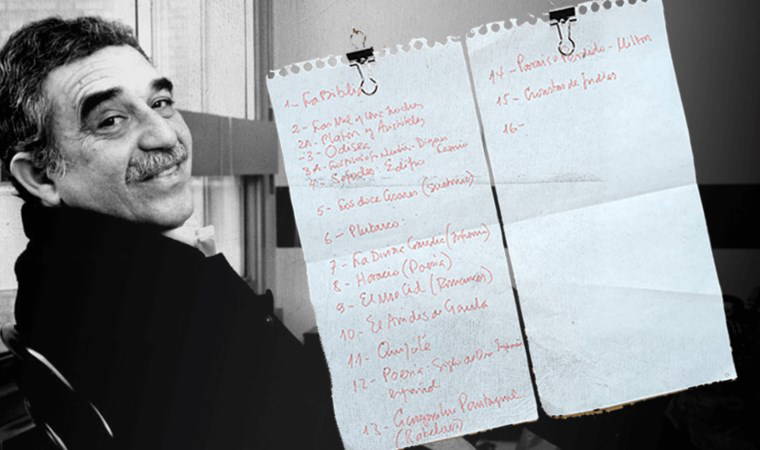 1- La Biblia
2- Las Mil y una noches
2A- Platón y Aristóteles
3- Odisea
4- Sófocles: Edipo
5- Los doce Césares (Suetonio)
6- Plutarco.
7- La Divina Comedia (Infierno)
8- Horacio (Poesía)
9- El Mio Cid (Romances)
10- El Amadís de Gaula
11- Quijote
12- Poesía - Siglo de Oro
español
13- Gargantúa y Pantagruel
(Rabelais)
14- Paraíso Perdido - Milton
15- Cronistas de Indias
16-